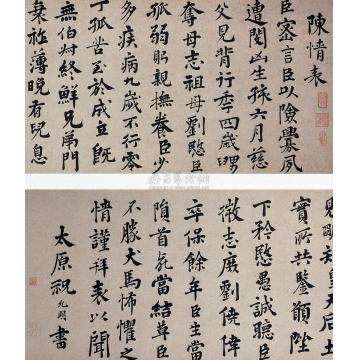 陳情表
臣密言臣以險釁夙
遭閔凶生孩六月慈
父見背行年四歲舅
奪母志祖母劉愍臣
孤弱躬親撫養臣少
多疾病九歲不行零
丁孤苦至於成立既
無伯叔終鮮兄弟門
衰祚薄晚有兒息
見明知皇天后土
實所共鑒願陛
下矜愍愚誠聽臣
微志庶劉僥倖
卒保餘年臣生當
隕首死當結草臣
不勝犬馬怖懼之
情謹拜表以聞
太原祝允明書